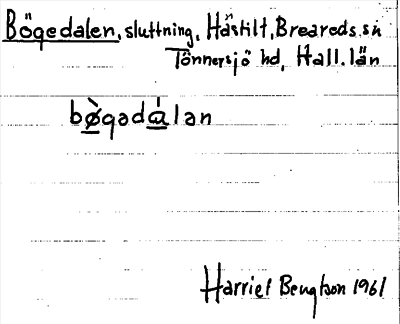 Bögedalen, sluttning, Hästilt, Breareds sn
Tönnersjö hd, Hall. län
bø̀gadá̱lan
Harriet Bengtson 1961